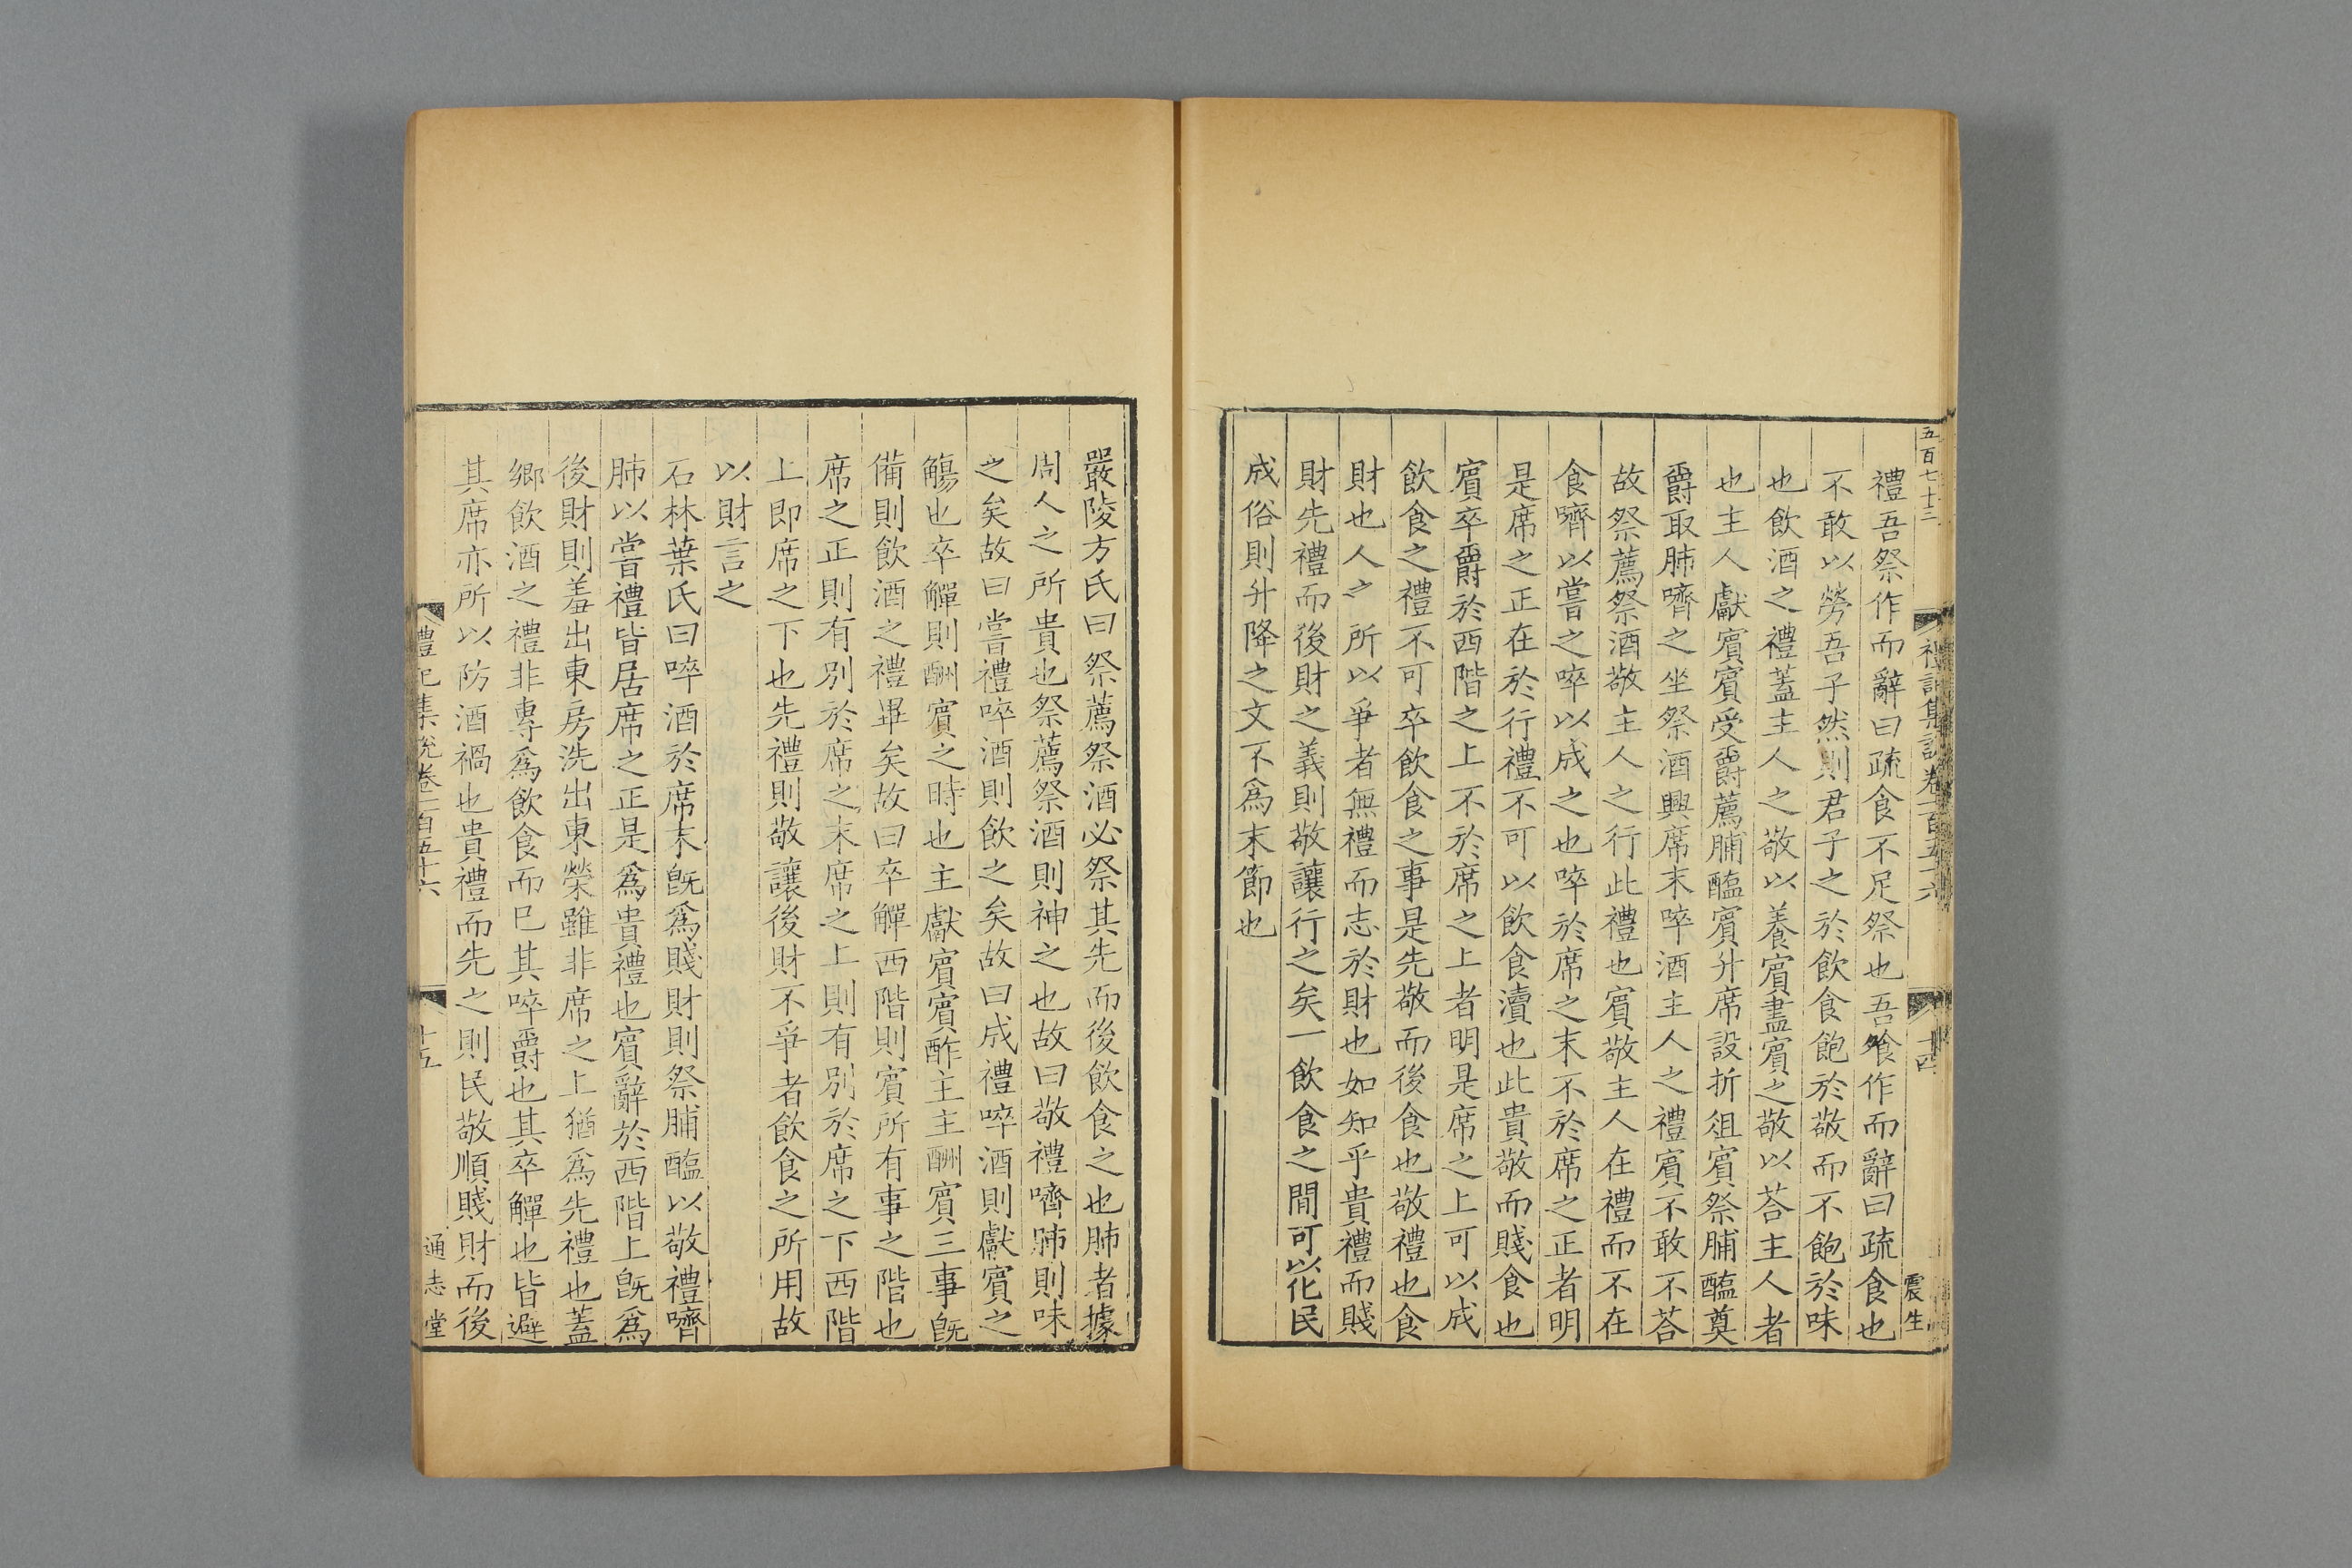 五百七十二
禮記集說卷一百五十六
十四
震生
禮吾祭作而辭曰疏食不足祭也吾飧作而辭曰疏食也
不敢以勞吾子然則君子之於飲食飽於敬而不飽於味
也飲酒之禮蓋主人之敬以養賓盡賓之敬以荅主人者
也主人獻賓賓受爵薦脯醢賓升席設折俎賓祭脯醢奠
爵取肺嚌之坐祭酒興席末啐酒主人之禮賓不敢不荅
故祭薦祭酒敬主人之行此禮也賓敬主人在禮而不在
食嚌以嘗之啐以成之也啐於席之末不於席之正者明
是席之正在於行禮不可以飲食瀆也此貴敬而賤食也
賓卒爵於西階之上不於席之上者明是席之上可以成
飲食之禮不可卒飲食之事是先敬而後食也敬禮也食
財也人之所以爭者無禮而志於財也如知乎貴禮而賤
財先禮而後財之義則敬讓行之矣一飲食之間可以化民
成俗則升降之文不爲末節也
嚴陵方氏曰祭薦祭酒必祭其先而後飲食之也肺者據
周人之所貴也祭薦祭酒則神之也故曰敬禮嚌肺則味
之矣故曰嘗禮啐酒則飲之矣故曰成禮啐酒則獻賓之
觴也卒觶則酬賓之時也主獻賓賓酢主主酬賓三事旣
備則飲酒之禮畢矣故曰卒觶西階則賓所有事之階也
席之正則有別於席之末席之上則有別於席之下西階
上即席之下也先禮則敬讓後財不爭者飲食之所用故
以財言之
石林葉氏曰啐酒於席末旣爲賤財則祭脯醢以敬禮嚌
肺以嘗禮皆居席之正是爲貴禮也賓辭於西階上旣爲
後財則羞出東房洗出東榮雖非席之上猶爲先禮也蓋
鄉飲酒之禮非專爲飲食而已其啐爵也其卒觶也皆避
其席亦所以防酒禍也貴禮而先之則民敬順賤財而後
禮記集說卷一百五十六
十五
通志堂